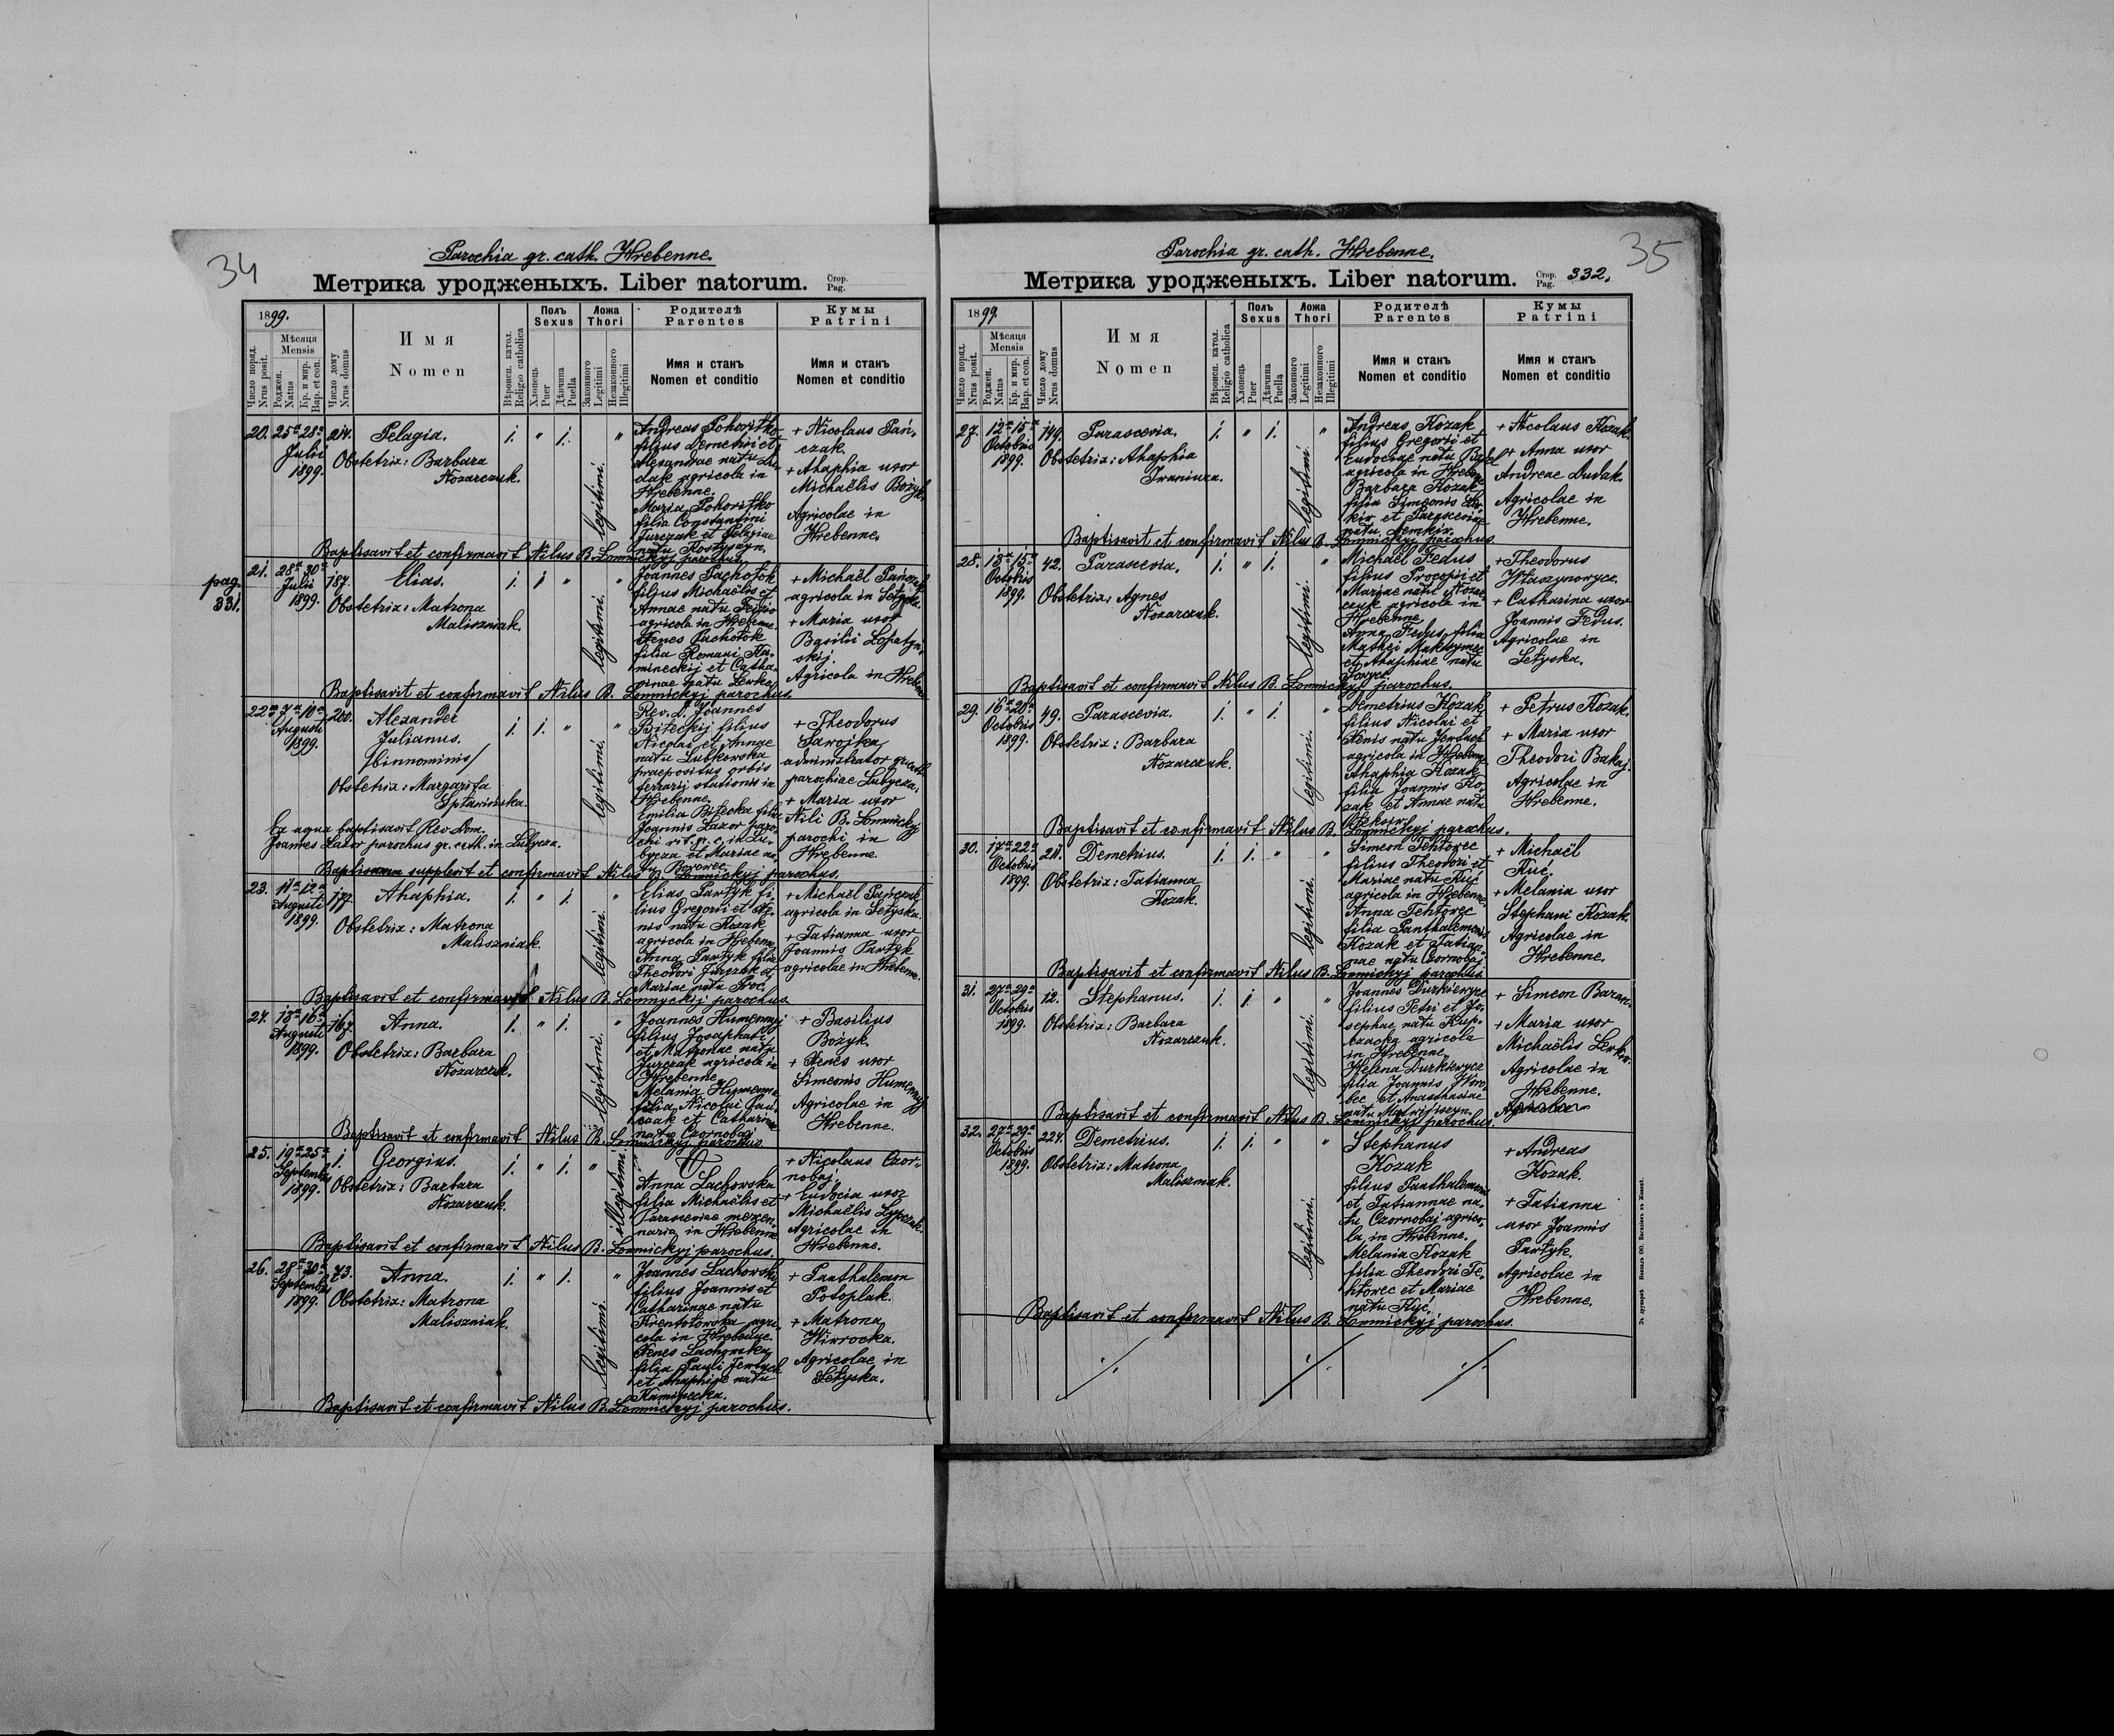 34
Parochia gr. cath. Hrebenne.
Метрика уродженыхъ. Liber natorum. Стор. Pag.
1899.
Число поряд. Nrus posit.
Мѣсяця Mensis
Роджен. Natus
Кр. и мир. Bap. et con.
Число дому Nrus domus
Имя
Nomen
Вѣроисп. катол. Religio catholica
Полъ Sexus
Хлопець Puer
Дѣвчина Puella
Ложа Thori
Законного Legitimi
Незаконного Illegitimi
Родителѣ Parentes
Имя и станъ
Nomen et conditio
Кумы Patrini
Имя и станъ
Nomen et conditio
20. 25ª 28ª Julii 1899. 214. Pelagia. 1. " 1. legitimi. "
Obstetrix: Barbara
Kozarczuk.
Andreas Pohoritko
filius Demetrii et
Alexandrae natu Du-
dak agricola in
Hrebenne.
Maria Pohoritko
filia Constantini
Jurczak et Pelagiae
natu Kostyszyn.
+ Nicolaus Pań-
czak.
+ Ahaphia uxor
Michaëlis Bożyk.
Agricolae in
Hrebenne.
Baptisavit et confirmavit Nilus B. Lomnickyj parochus.
pag.
331.
21. 28ª 30ª Julii 1899. 187. Elias. 1. 1 " legitimi. "
Obstetrix: Matrona
Maliszniak.
Joannes Pachołok
filius Michaëlis et
Annae natu
agricola in Hrebenne.
Xenes Pachołok
filia Romani Ka-
mineckij et Catha-
rinae natu Lewko.
+ Michaël Pańczak
agricola in Setyska.
+ Maria uxor
Basilii Łopatyn-
skij.
Agricola in Hrebenne
Baptisavit et confirmavit Nilus B. Lomnickyj parochus.
22. 7ª 10ª Augusti 1899. 200. Alexander
Julianus.
/binnominis/
1. 1. " legitimi. "
Obstetrix: Margarita
Ex aqua baptisavit Rev. Dom.
Joannes Lazor parochus gr. cath. in Lubycza.
Rev. D. Joannes
Biłeckij filius
Nicolai et Annae
natu Lubkowska
praepositus orbis
ferrarii stationis in
Hrebenne.
Emilia Biłecka filia
Joannis Lazor paro-
chi rit. g. c. in Lu-
bycza et Mariae na-
tu Borowec.
+ Theodorus
Sarojka
administrator gr. cath.
parochiae Lubycza.
+ Maria uxor
Nili B. Lomnickij
parochi in
Hrebenne.
Baptismum supplevit et confirmavit Nilus B. Lomnickyj parochus.
23. 11ª 12ª Augusti 1899. 177. Ahaphia. 1. " 1. legitimi. "
Obstetrix: Matrona
Maliszniak.
Elias Partyk fi-
lius Gregorii et Xe-
nis natu Kozak
agricola in Hrebenne.
Anna Partyk filia
Theodori Jurczak et
Mariae natu Proc.
+ Michaël Pańczak
agricola in Setyska.
+ Tatianna uxor
Joannis Partyk
agricolae in Hrebenne.
Baptisavit et confirmavit Nilus B. Lomnyckij parochus.
24. 13ª 16ª Augusti 1899. 167. Anna. 1. " 1. legitimi. "
Obstetrix: Barbara
Kozarczuk.
Joannes Humennyj
filius Josaphati
et Matronae natu
Jurczak agricola in
Hrebenne
Melania Humenna
filia Nicolai Pań-
czak et Catharinae
natu Czornobaj.
+ Basilius
Bożyk.
+ Xenes uxor
Simeonis Humennyj
Agricolae in
Hrebenne.
Baptisavit et confirmavit Nilus B. Lomnickyj parochus.
25. 19ª 25ª Septembris 1899. 1. Georgius. 1. " 1. " illegitimi.
Obstetrix: Barbara
Kozarczuk.
Anna Lachowska
filia Michaëlis et
Parasceviae mercen-
naria in Hrebenne
+ Nicolaus Czor-
nobaj.
+ Eudocia uxor
Michaëlis Łypczak.
Agricolae in
Hrebenne.
Baptisavit et confirmavit Nilus B. Lomnickyj parochus.
26. 28ª 30ª Septembris 1899. 73. Anna. 1. " 1. legitimi. "
Obstetrix: Matrona
Maliszniak.
Joannes Lachowskij
filius Joannis et
Catharinae natu
Krentołowska agri-
cola in Hrebenne.
Xenes Lachowska
filia Pauli Jentych
et Ahaphiae natu
Kaminecka.
+ Panthalemon
Potoplak.
+ Matrona
Wirrocka.
Agricolae in
Setyska.
Baptisavit et confirmavit Nilus B. Lomnickyj parochus.
35
Parochia gr. cath. Hrebenne.
Метрика уродженыхъ. Liber natorum. Стор. Pag. 332.
1899.
Число поряд. Nrus posit.
Мѣсяця Mensis
Роджен. Natus
Кр. и мир. Bap. et con.
Число дому Nrus domus
Имя
Nomen
Вѣроисп. катол. Religio catholica
Полъ Sexus
Хлопець Puer
Дѣвчина Puella
Ложа Thori
Законного Legitimi
Незаконного Illegitimi
Родителѣ Parentes
Имя и станъ
Nomen et conditio
Кумы Patrini
Имя и станъ
Nomen et conditio
27. 12ª 15ª Octobris 1899. 149. Parascevia. 1. " 1. legitimi. "
Obstetrix: Ahaphia
Iwaniura.
Andreas Kozak
filius Gregorii et
Eudociae natu
agricola in Hrebenne
Barbara Kozak
filia Simeonis
et Parasceviae
natu Demkiw.
+ Nicolaus Kozak.
+ Anna uxor
Andreae Dudak.
Agricolae in
Hrebenne.
Baptisavit et confirmavit Nilus B. Lomnickyj parochus.
28. 13ª 15ª Octobris 1899. 42. Parascevia. 1. " 1. legitimi. "
Obstetrix: Agnes
Kozarczuk.
Michaël Fedus
filius Procopii et
Mariae natu Kozar-
czuk agricola in
Hrebenne
Anna Fedus filia
Mathei Maksymec
et Ahaphiae natu
+ Theodorus
Hłaszynowycz.
+ Catharina uxor
Joannis Fedus.
Agricolae in
Setyska.
Baptisavit et confirmavit Nilus B. Lomnickyj parochus.
29. 16ª 20ª Octobris 1899. 49. Parascevia. 1. " 1. legitimi. "
Obstetrix: Barbara
Kozarczuk.
Demetrius Kozak
filius Nicolai et
Xenis natu Jentych
agricola in Hrebenne
Ahaphia Kozak
filia Joannis Ko-
zak et Annae natu
Oleksiw.
+ Petrus Kozak.
+ Maria uxor
Theodori Bakaj.
Agricolae in
Hrebenne.
Baptisavit et confirmavit Nilus B. Lomnickyj parochus.
30. 17ª 22ª Octobris 1899. 211. Demetrius. 1. 1. " legitimi. "
Obstetrix: Tatianna
Kozak.
Simeon Tehtorec
filius Theodori et
Mariae natu Kuć
agricola in Hrebenne.
Anna Tehtorec
filia Panthalemonis
Kozak et Tatian-
nae natu Czornobaj.
+ Michaël
Kuć.
+ Melania uxor
Stephani Kozak.
Agricolae in
Hrebenne.
Baptisavit et confirmavit Nilus B. Lomnickyj parochus.
31. 27ª 29ª Octobris 1899. 12. Stephanus. 1. 1. " legitimi. "
Obstetrix: Barbara
Kozarczuk.
Joannes Durkiewycz
filius Petri et Jo-
sephae natu Kup-
agricola
in Hrebenne
Helena Durkiewycz
filia Joannis Woro-
bec et Anasthasiae
natu
+ Simeon Baran.
+ Maria uxor
Michaëlis Lewko.
Agricolae in
Hrebenne.
Agricolae
Baptisavit et confirmavit Nilus B. Lomnickyj parochus.
32. 27ª 29ª Octobris 1899. 224. Demetrius. 1. 1. " legitimi. "
Obstetrix: Matrona
Maliszniak.
Stephanus
Kozak
filius Panthalemonis
et Tatiannae na-
tu Czornobaj agrico-
la in Hrebenne.
Melania Kozak
filia Theodori Te-
htorec et Mariae
natu Kuć.
+ Andreas
Kozak.
+ Tatianna
uxor Joannis
Partyk.
Agricolae in
Hrebenne.
Baptisavit et confirmavit Nilus B. Lomnickyj parochus.